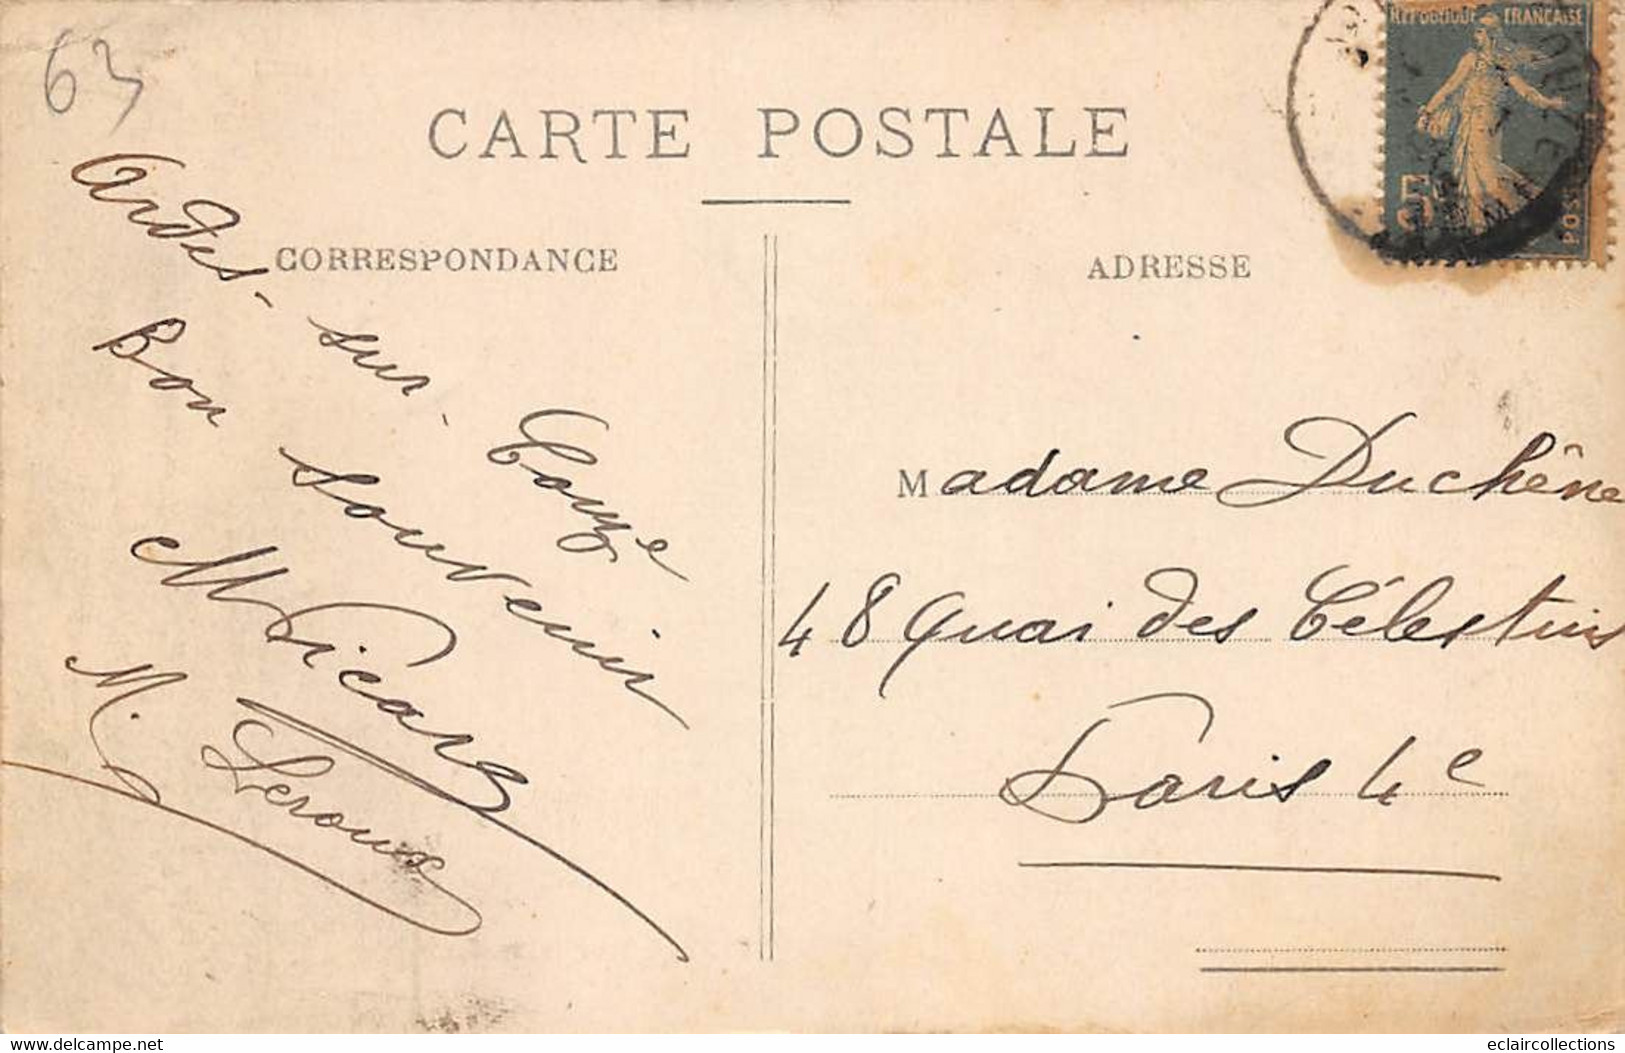 63
CARTE POSTALE
CORRESPONDANCE
ADRESSE
REPUBLIQUE FRANÇAISE
5c
POSTES
Ardes-sur-Couze
Bon souvenir
M. Leroux
Madame Duchêne
48 Quai des Célestins
Paris 4e
www.delcampe.net
eclaircollections